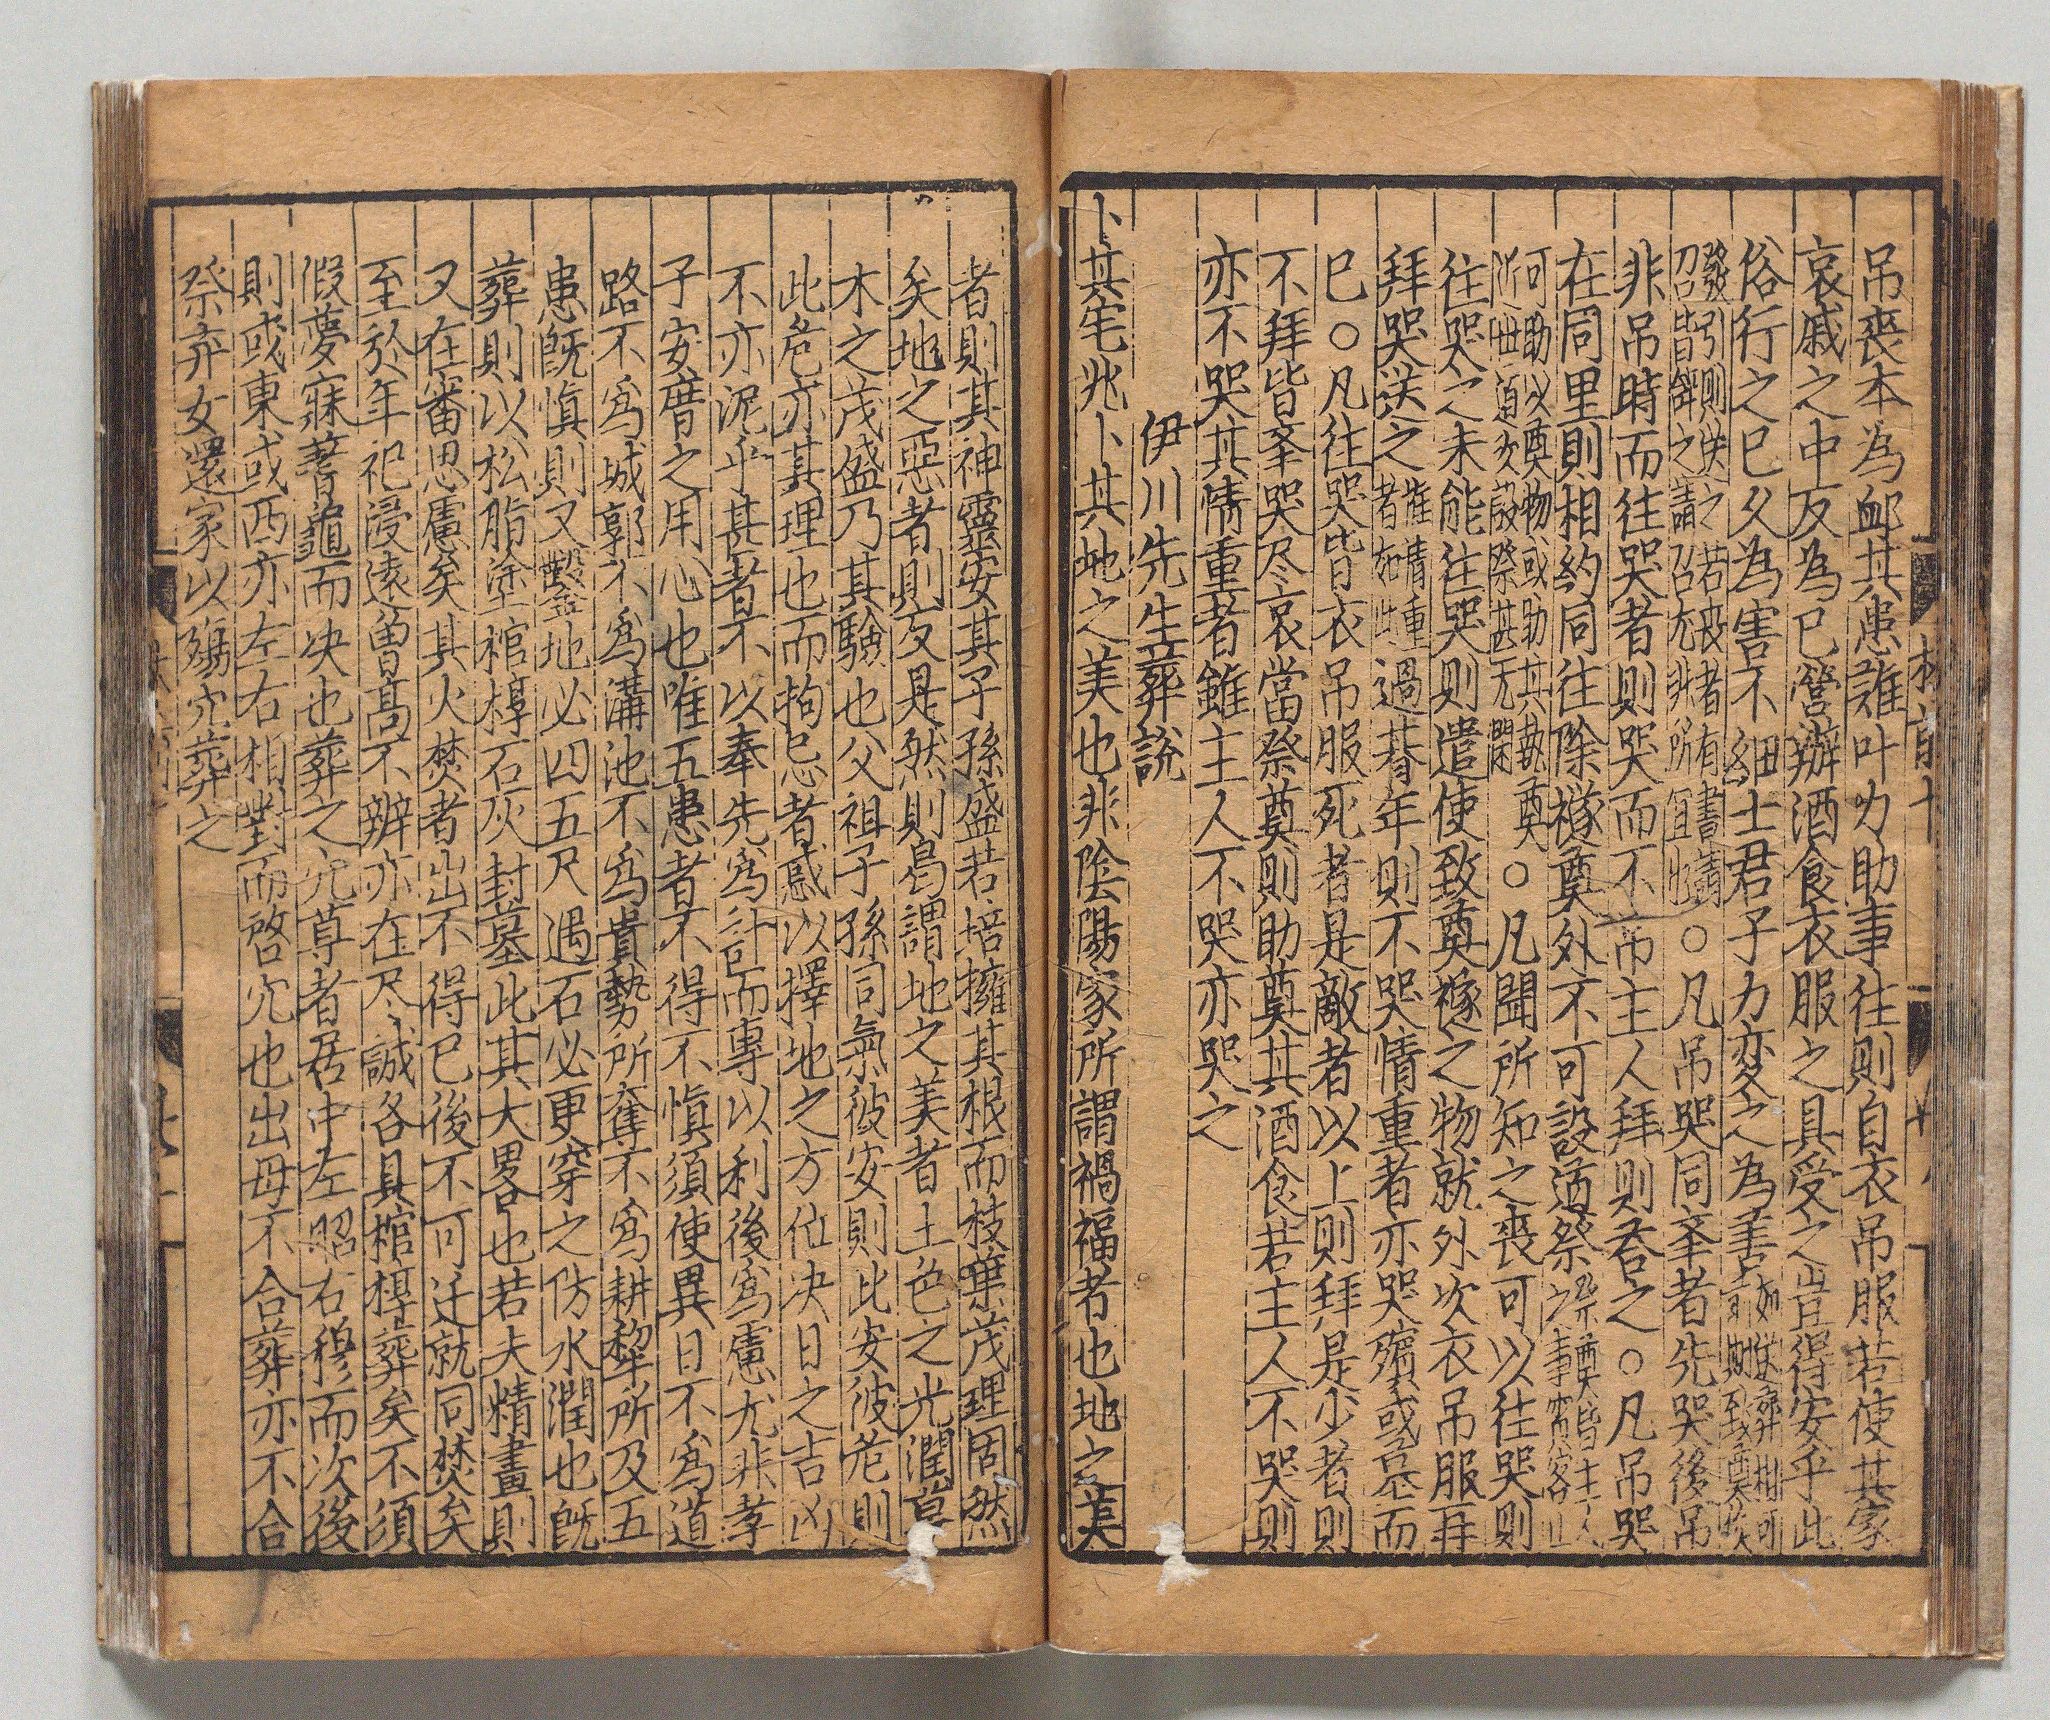 吊喪本為䘏其患誰叶力助事往則自衣吊服若使其家
哀戚之中反為已營辦酒食衣服之具受之豈得安乎此
俗行之已久為害不細士君子力変之為善如送葬相可
前期至奠
發引則送之若被者有書請
召皆辝之請召尤非所宜 ○凡吊哭同幸者先哭後吊
非吊時而往哭者則哭而不吊主人拜則荅之○凡吊哭
在同里則相約同往除禭奠外不可設道祭祭奠皆主人
之事賔客止
可助以奠物或助其執奠
近世道次設祭甚无謂○凡聞所知之喪可以往哭則
往哭之未能往哭則遣使致奠禭之物就外次衣吊服再
拜哭送之惟情重
者如此過朞年則不哭情重者亦哭殯或墓而
已○凡往哭皆衣吊服死者是敵者以上則拜是少者則
不拜皆举哭尽哀當祭奠則助奠其酒食若主人不哭則
亦不哭其情重者雖主人不哭亦哭之
伊川先生葬說
卜其宅兆卜其地之美也非陰陽家所謂禍福者也地之美
者則其神靈安其子孫盛若培擁其根而枝葉茂理固然
矣地之惡者則反是然則曷謂地之美者土色之光潤草
木之茂盛乃其驗也父祖子孫同氣彼安則此安彼危則
此危亦其理也而拘忌者惑以擇地之方位决日之吉凶
不亦泥乎甚者不以奉先爲計而專以利後爲慮尤非孝
子安厝之用心也唯五患者不得不愼須使異日不爲道
路不爲城郭不爲溝池不爲貴勢所奪不爲耕犂所及五
患旣愼則又鑿地必四五尺遇石必更穿之防水潤也旣
葬則以松脂塗棺椁石灰封墓此其大畧也若夫精畫則
又在審思慮矣其火焚者出不得已後不可迁就同焚矣
至於年祀寖遠曾高不辨亦在尽誠各具棺椁葬矣不須
假夢寐蓍龜而决也葬之穴尊者居中左昭右穆而次後
則或東或西亦左右相對而啓穴也出母不合葬亦不合
祭弃女還家以殤穴葬之